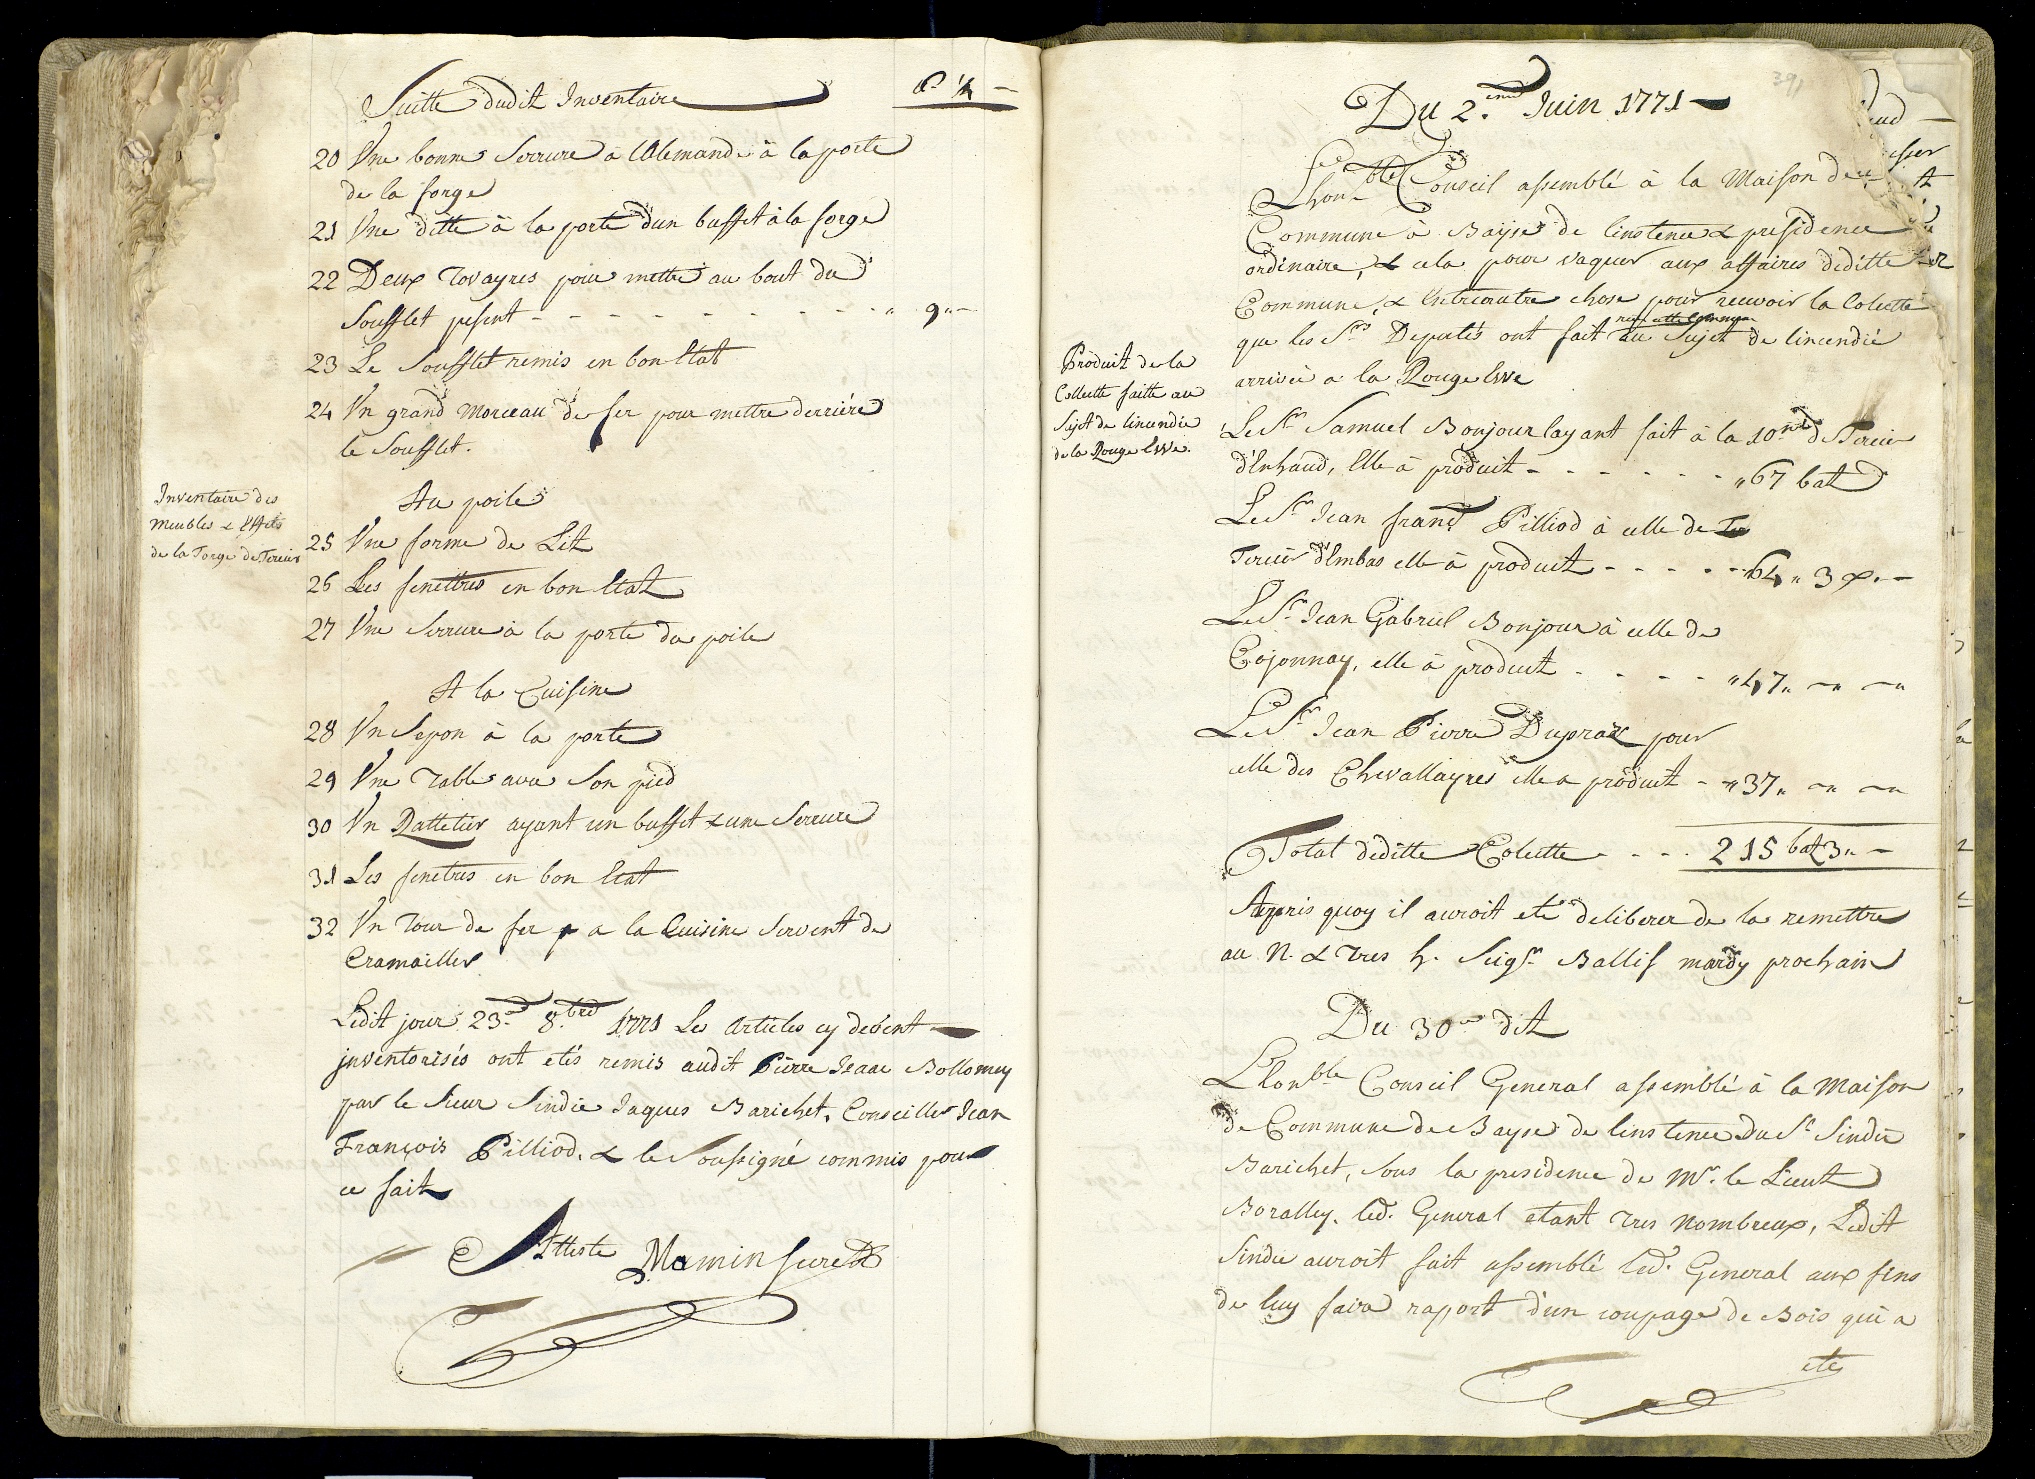 Suitte dudit Inventaire
20 Une bonne Serrure a lAlemande à la porte
de la forge
21 Une ditte à la porte d'un buffet à la forge
22 Deux Tovayres pour mettre au bout du
Soufflet pesent - - - - - - - - - " 9 " -
23 Le Soufflet remis en bon Etat
24 Un grand Morceau de fer pour mettre derriére
le Soufflet.
Inventaire des
Meubles & Effets
de la Forge de Tercier
Au poile
25 Une forme de Lit
26 Les fenettres en bon Etat
27 Une Serrure à la porte du poile
A la Cuisine
28 Un Sepon à la porte
29 Une Table avec Son pied
30 Un Rattelier ayant un buffet & une Serrure
31 Les fenetres en bon Etat
32 Un Tour de fer a la Cuisine Servent de
Cramailler
Ledit jour 23e 8bre 1771 Les Articles cy devent
inventorisés ont etés remis audit Pierre Isaac Bollomey
par le Sieur Sindic Jaques Barichet, Conseiller Jean
François Pilliod, & le Soussigné commis pour
ce fait
Atteste Mamin Secret
391
Du 2.eme Juin 1771
Lhonble Conseil assemblé à la Maison de
Commune à Bayse de linstence & presidence
ordinaire, & cela pour vaquer aux affaires deditte
Commune, & Entrecautre chose pour recevoir la Colette
que les Srs Deputés ont fait au Sujet de lincendie
arrivée a la Rouge Eve
Produit de la
Collette faitte au
Sujet de lincendie
de la Rouge Eve.
Le Sr Samuel Bonjour layant fait à la 10ne de Tercier
d'Enhaud, Elle à produit - - - - - - " 67 batz
Le Sr Jean franç Pilliod à celle de
Tercier d'Embas elle à produit - - - - - 64 " 3 x. -
Le Sr Jean Gabriel Bonjour à celle de
Cojonnay, elle à produit - - - - " 47 " - " - "
Le Sr Jean Pierre Dupraz pour
celle des Chevallayres elle a produit - " 37 " - " - "
Total deditte Colette - - - 215 batz 3 " -
Aprris quoy il auroit eté deliberer de la remettre
au N. & Tres h. Seigr. Ballif mardy prochain
Du 30e dit
Lhonble Conseil General assemblé à la Maison
de Commune de Bayse de linstence Du Sr Sindic
Barichet, Sous la presidence de Mr. le Lieut
Boralley. led. General etant Tres Nombreux, Ledit
Sindic auroit fait assemblé led. General aux fins
de luy faire raport d'un coupage de Bois qui a
etés